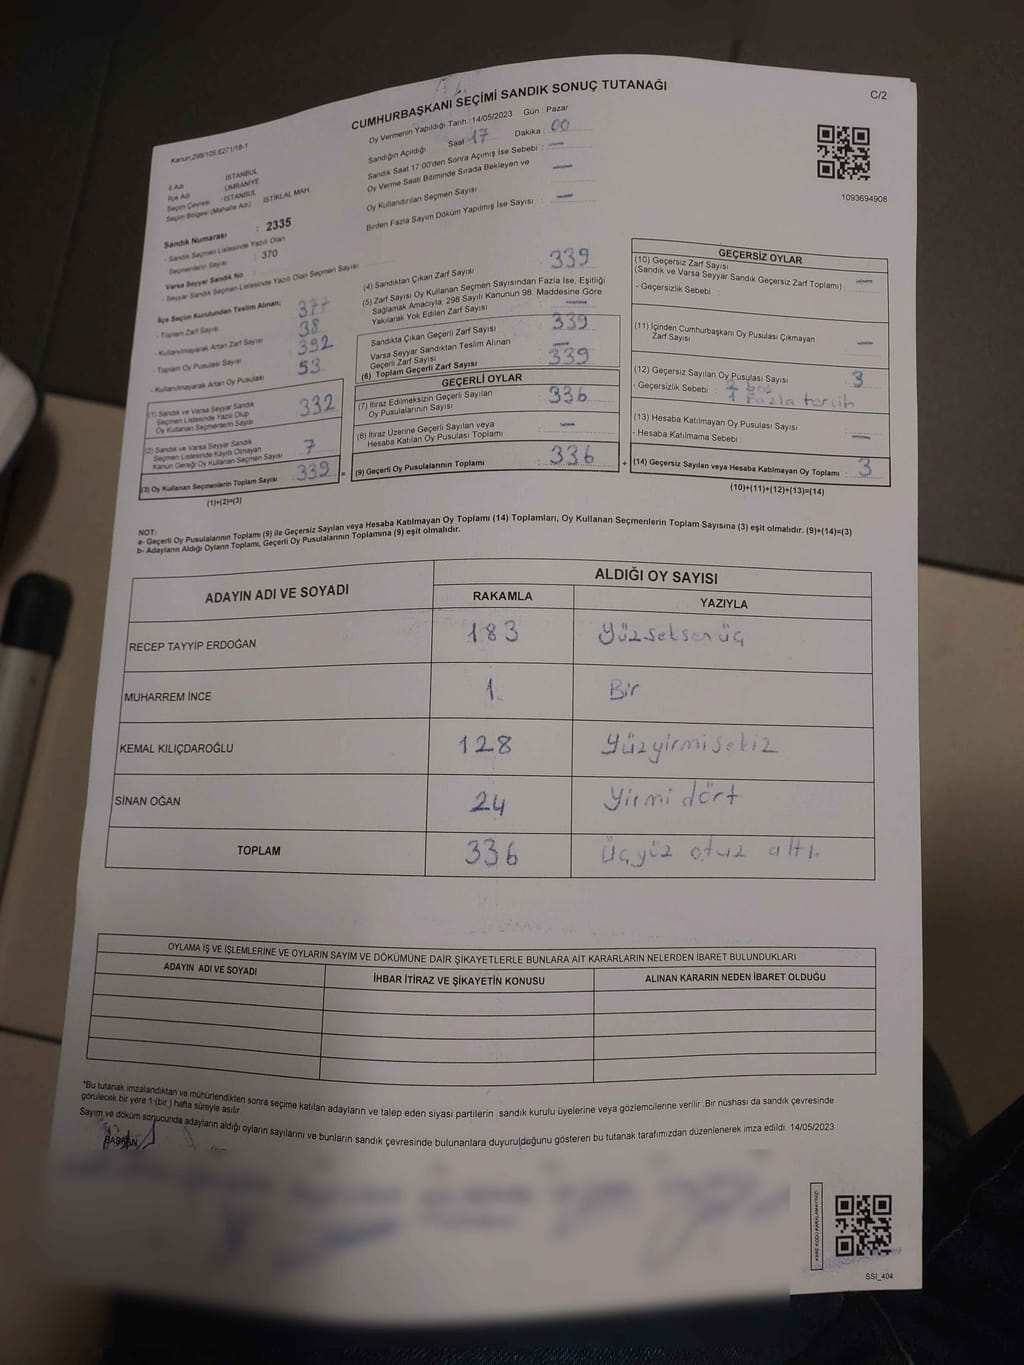 CUMHURBAŞKANI SEÇİMİ SANDIK SONUÇ TUTANAĞI
C/2
Kanun:298/105;6271/18-1
Oy Vermenin Yapıldığı Tarih : 14/05/2023 Gün : Pazar
Sandığın Açıldığı Saat 17 Dakika : 00
Sandık Saat 17 00'den Sonra Açımış İse Sebebi :
Oy Verme Saati Bitiminde Sırada Bekleyen ve
Oy Kullandırılan Seçmen Sayısı
Birden Fazla Sayım Döküm Yapılmış İse Sayısı :
1093694908
İl Adı : İSTANBUL
İlçe Adı : ÜMRANİYE
Seçim Çevresi : İSTANBUL
Seçim Bölgesi (Mahalle Adı) : İSTİKLAL MAH.
Sandık Numarası : 2335
- Sandık Seçmen Listesinde Yazılı Olan
Seçmenlerin Sayısı : 370
Varsa Seyyar Sandık No :
- Seyyar Sandık Seçmen Listesinde Yazılı Olan Seçmen Sayısı
İlçe Seçim Kurulundan Teslim Alınan;
- Toplam Zarf Sayısı 377
- Kullanılmayarak Artan Zarf Sayısı 38
- Toplam Oy Pusulası Sayısı 392
- Kullanılmayarak Artan Oy Pusulası 53
(1) Sandık ve Varsa Seyyar Sandık
Seçmen Listesinde Yazılı Olup
Oy Kullanan Seçmenlerin Sayısı 332
(2) Sandık ve Varsa Seyyar Sandık
Seçmen Listesinde Kayıtlı Olmayan
Kanun Gereği Oy Kullanan Seçmen Sayısı 7
(3) Oy Kullanan Seçmenlerin Toplam Sayısı 339
(1)+(2)=(3)
(4) Sandıktan Çıkan Zarf Sayısı 339
(5) Zarf Sayısı Oy Kullanan Seçmen Sayısından Fazla İse, Eşitliği
Sağlamak Amacıyla; 298 Sayılı Kanunun 98. Maddesine Göre
Yakılarak Yok Edilen Zarf Sayısı
Sandıkta Çıkan Geçerli Zarf Sayısı 339
Varsa Seyyar Sandıktan Teslim Alınan
Geçerli Zarf Sayısı
(6) Toplam Geçerli Zarf Sayısı 339
GEÇERLİ OYLAR
(7) İtiraz Edilmeksizin Geçerli Sayılan
Oy Pusulalarının Sayısı 336
(8) İtiraz Üzerine Geçerli Sayılan veya
Hesaba Katılan Oy Pusulası Toplamı
= (9) Geçerli Oy Pusulalarının Toplamı 336
GEÇERSİZ OYLAR
(10) Geçersiz Zarf Sayısı
(Sandık ve Varsa Seyyar Sandık Geçersiz Zarf Toplamı) :
- Geçersizlik Sebebi :
(11) İçinden Cumhurbaşkanı Oy Pusulası Çıkmayan
Zarf Sayısı
(12) Geçersiz Sayılan Oy Pusulası Sayısı 3
- Geçersizlik Sebebi : 2 boş
1 Fazla tercih
(13) Hesaba Katılmayan Oy Pusulası Sayısı
- Hesaba Katılmama Sebebi
+ (14) Geçersiz Sayılan veya Hesaba Katılmayan Oy Toplamı : 3
(10)+(11)+(12)+(13)=(14)
NOT:
a- Geçerli Oy Pusulalarının Toplamı (9) ile Geçersiz Sayılan veya Hesaba Katılmayan Oy Toplamı (14) Toplamları, Oy Kullanan Seçmenlerin Toplam Sayısına (3) eşit olmalıdır. (9)+(14)=(3)
b- Adayların Aldığı Oyların Toplamı, Geçerli Oy Pusulalarının Toplamına (9) eşit olmalıdır.
ADAYIN ADI VE SOYADI
ALDIĞI OY SAYISI
RAKAMLA YAZIYLA
RECEP TAYYİP ERDOĞAN 183 Yüzseksenüç
MUHARREM İNCE 1 Bir
KEMAL KILIÇDAROĞLU 128 Yüzyirmisekiz
SİNAN OĞAN 24 Yirmi dört
TOPLAM 336 Üçyüz otuz altı.
OYLAMA İŞ VE İŞLEMLERİNE VE OYLARIN SAYIM VE DÖKÜMÜNE DAİR ŞİKAYETLERLE BUNLARA AİT KARARLARIN NELERDEN İBARET BULUNDUKLARI
ADAYIN ADI VE SOYADI İHBAR İTİRAZ VE ŞİKAYETİN KONUSU ALINAN KARARIN NEDEN İBARET OLDUĞU
*Bu tutanak imzalandıktan ve mühürlendikten sonra seçime katılan adayların ve talep eden siyasi partilerin sandık kurulu üyelerine veya gözlemcilerine verilir .Bir nüshası da sandık çevresinde
görülecek bir yere 1 (bir ) hafta süreyle asılır.
Sayım ve döküm sonucunda adayların aldığı oyların sayılarını ve bunların sandık çevresinde bulunanlara duyurulduğunu gösteren bu tutanak tarafımızdan düzenlenerek imza edildi. 14/05/2023
BAŞKAN
KARE KODU KARALAMAYINIZ!
SSI_404